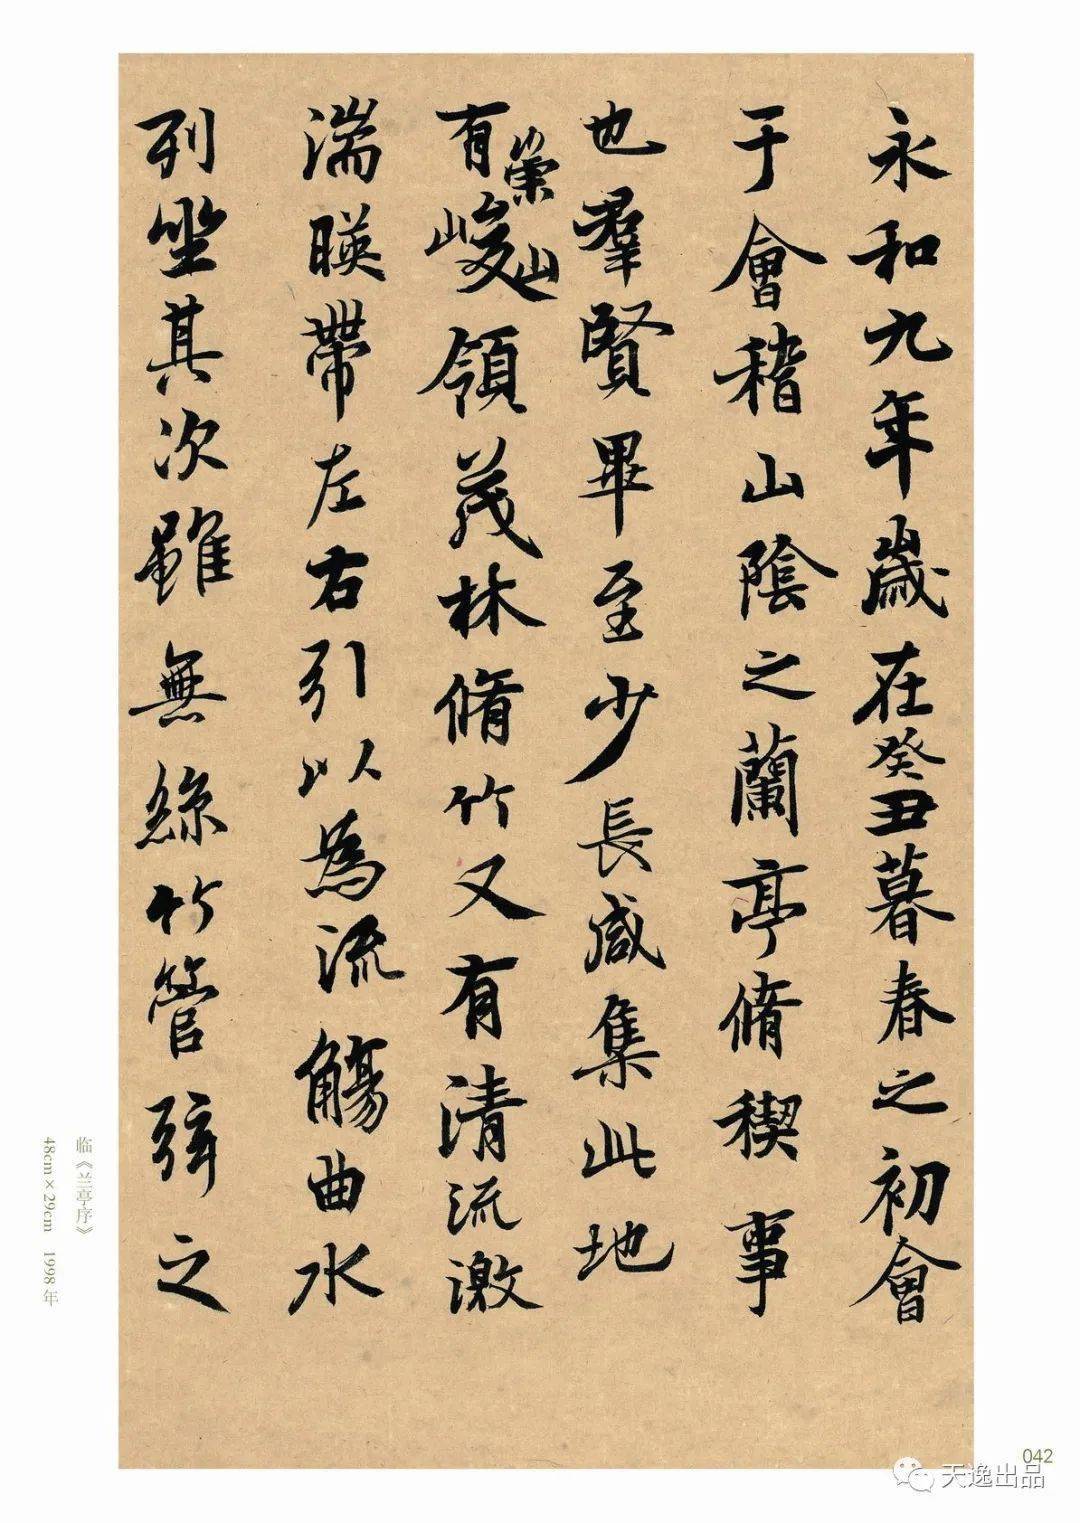 永和九年歲在癸丑暮春之初會
于會稽山陰之蘭亭脩稧事
也羣賢畢至少長咸集此地
有崇山峻領茂林脩竹又有清流激
湍暎帶左右引以為流觴曲水
列坐其次雖無絲竹管弦之
临《兰亭序》
48cm×29cm 1998年
042
天逸出品